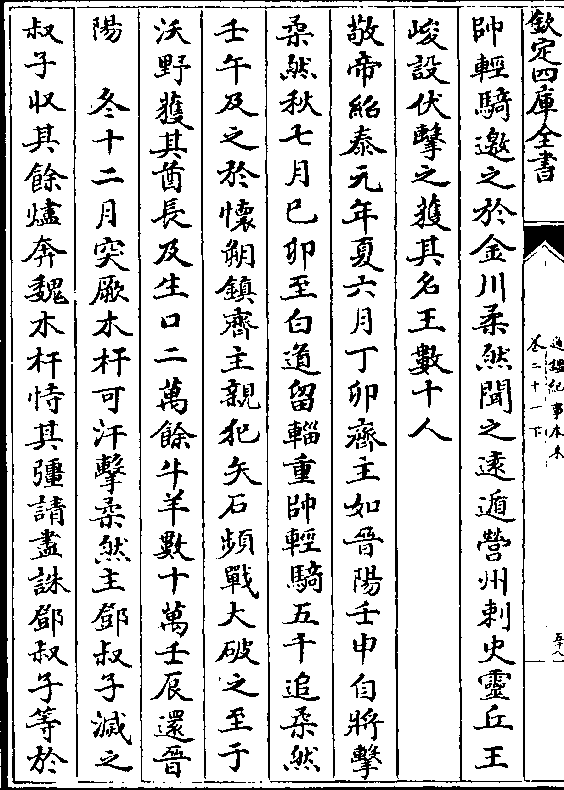 欽定四庫全書
通鑑紀事本末
卷二十一下
五十八
帥輕騎邀之於金川柔然聞之遠遁營州刺史靈丘王
峻設伏擊之獲其名王數十人
敬帝紹泰元年夏六月丁卯齊主如晉陽壬申自將擊
柔然秋七月己卯至白道留輜重帥輕騎五千追柔然
壬午及之於懷朔鎮齊主親犯矢石頻戰大破之至于
沃野獲其酋長及生口二萬餘牛羊數十萬壬辰還晉
陽　冬十二月突厥木杆可汗擊柔然主鄧叔子滅之
叔子收其餘燼奔魏木杆恃其彊請盡誅鄧叔子等於